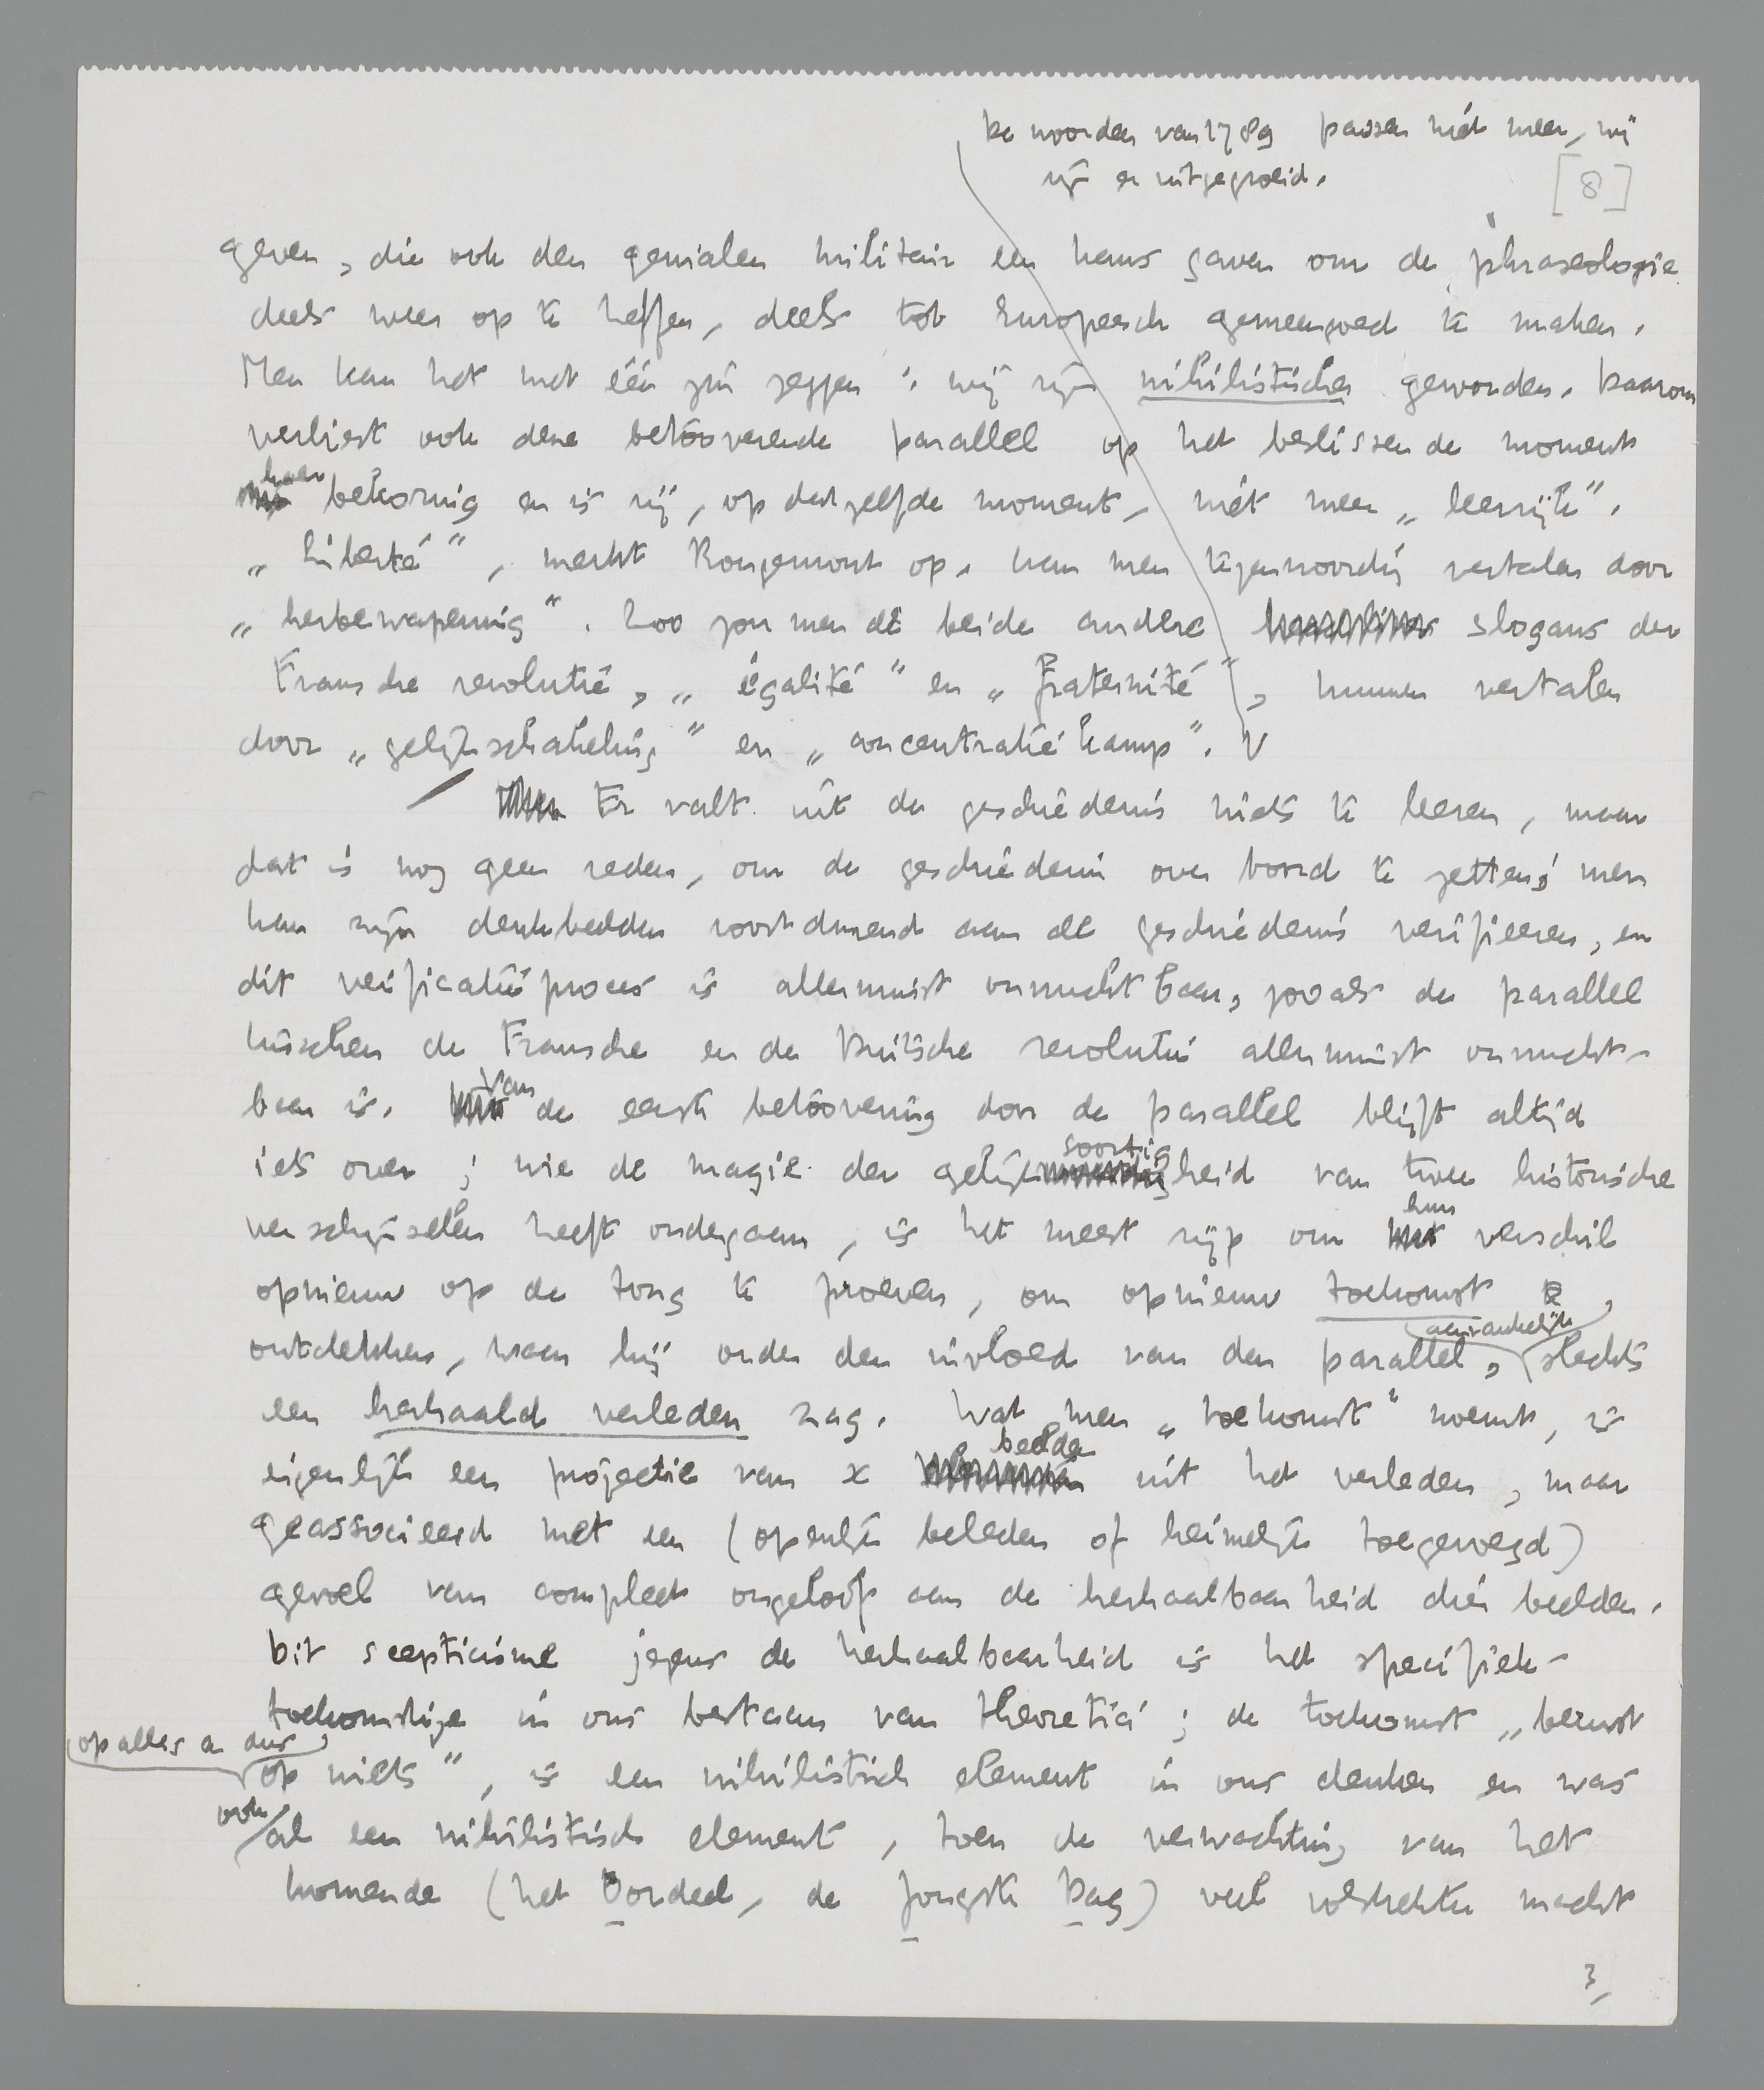 De woorden van 1789 passen niet meer, wij
zijn er uitgegroeid.
[8]
geven, die ook den genialen militair een kans gaven om de phraseologie
deels weer op te heffen, deels tot Europeesch gemeengoed te maken.
Men kan het met één zin zeggen: wij zijn nihilistischer geworden. Daarom
verliest ook deze betooverende parallel op het beslissende moment
haar betoovering en is zij, op datzelfde moment, niet meer „leerrijk".
„Liberté", merkt Rougemont op, kan men tegenwoordig vertalen door
„herbewapening". Zoo zou men de beide andere slogans der
Fransche revolutie, „égalité" en „fraternité", kunnen vertalen
door „gelijkschakeling" en „concentratiekamp". V
Er valt uit de geschiedenis niets te leeren, maar
dat is nog geen reden, om de geschiedenis over boord te zetten; men
kan zijn denkbeelden voortdurend aan de geschiedenis verifieeren, en
dit verificatieproces is allerminst onvruchtbaar, zooals de parallel
tusschen de Fransche en de Duitsche revolutie allerminst onvrucht-
baar is. Van de eerste betoovering door de parallel blijft altijd
iets over; wie de magie der gelijksoortigheid van twee historische
verschijnselen heeft ondergaan, is het meest rijp om hun verschil
opnieuw op de tong te proeven, om opnieuw toekomst te
ontdekken, waar hij onder den invloed van den parallel, aanvankelijk slechts
een herhaald verleden zag. Wat men „toekomst" noemt, is
eigenlijk een projectie van x beelden uit het verleden, maar
geassocieerd met een (openlijk beleden of heimelijk toegevoegd)
gevoel van compleet ongeloof aan de herhaalbaarheid dier beelden.
Dit scepticisme jegens de herhaalbaarheid is het specifiek-
toekomstige in ons bestaan van theoretici; de toekomst „berust
op alles en dus op niets", is een nihilistisch element in ons denken en was
ook al een nihilistisch element, toen de verwachting van het
komende (het Oordeel, de Jongste Dag) veel volstrekter macht
3